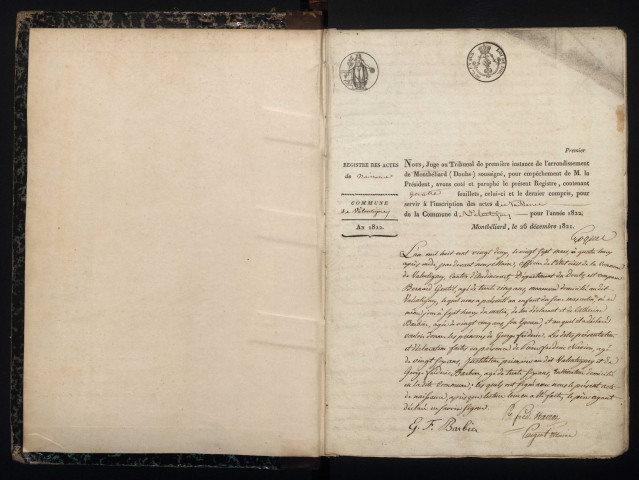 Premier
REGISTRE DES ACTES
de Naissance
COMMUNE
de Valentigney
AN 1822.
Nous, Juge au Tribunal de première instance de l'arrondissement
de Montbéliard (Doubs) soussigné, pour empêchement de M. le
Président, avons coté et paraphé le présent Registre, contenant
feuillets, celui-ci et le dernier compris, pour
servir à l'inscription des actes de Naissance
de la Commune de Valentigney pour l'année 1822.
Montbéliard, le 26 décembre 1821.
L'an mil huit cent vingt deux, le vingt sept mars à quatre heures
après midi, par devant nous Maire, officier de l'état civil de la commune
de Valentigney, Canton d'Audincourt, Département du Doubs, est comparu
Bernard agé de trente cinq ans, domicilié audit
Valentigney, lequel nous a présenté un enfant du sexe masculin, né ce
à sept heures du matin, de lui déclarant et de Catherine
Barbier, agée de vingt cinq ans, son épouse, et auquel il a déclaré
vouloir donner les prénoms de George Frédéric. Les dites présentation
et déclaration faites en présence de Pierre Frédéric agé
de vingt ans, Instituteur primaire audit Valentigney et de
George Frédéric Barbier, agé de trente ans, domicilié
à la dite commune; lesquels ont signé avec nous le présent acte
de naissance, après que lecture leur en a été faite, le père ayant
déclaré ne savoir signer.
G. F. Barbier